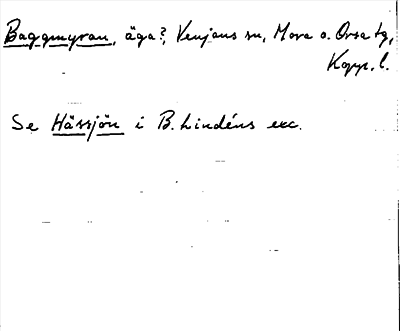 Baggmyran, äga?, Venjans sn, Mora o. Orsa tg,
Kopp. l.
Se Hässjön i B. Lindéns exc.